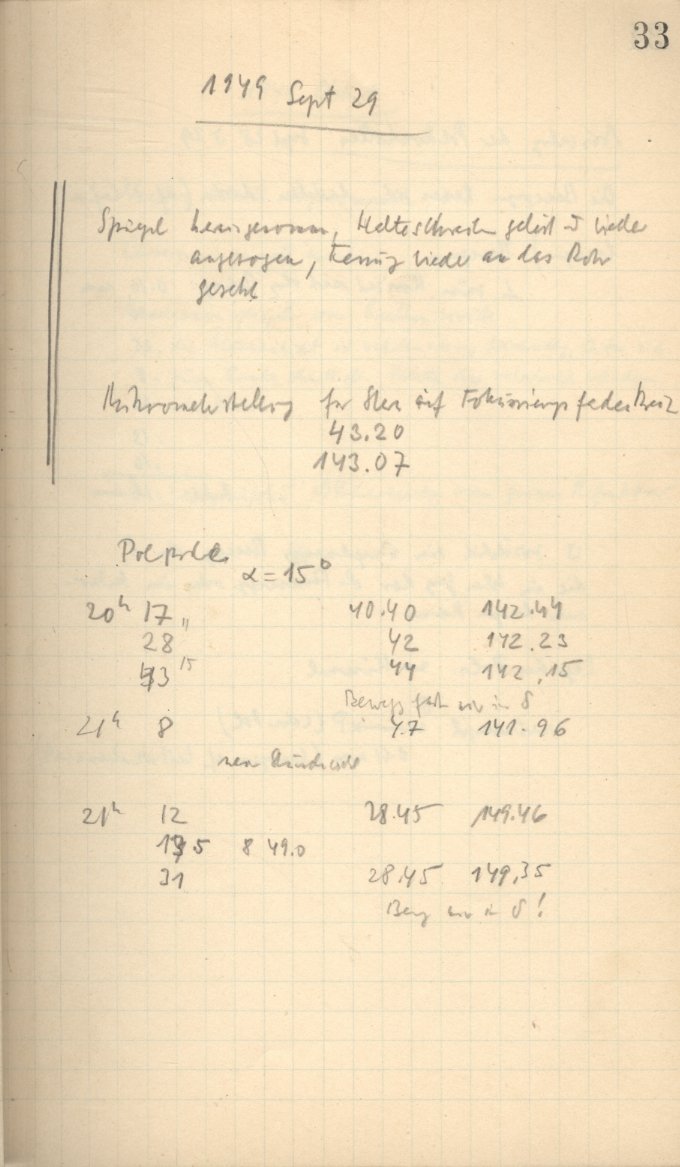 33
1949 Sept 29
Spiegel herausgenommen, Halteschrauben gelöst u wieder
angezogen, wieder an das Rohr
gesetzt
Mikrometerstellung für Stern auf Fokussierungsfadenkreuz
43.20
143.07
Polhöhe
α = 15h
20h 17 40.40 142.44
28 42 142.23
43 15 44 142.15
Beweg fast nur in δ
21h 8 47 141.96
neue
21h 12 28.45 149.46
15 8 49.0
31 28.45 149.35
Beweg nur in δ!